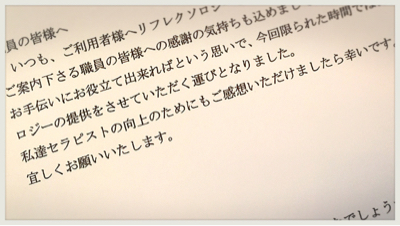 員の皆様へ
いつも、ご利用者様へリフレクソロジ
ご案内下さる職員の皆様への感謝の気持ちも込めまし
お手伝いにお役立て出来ればという思いで、今回限られた時間では
ロジーの提供をさせていただく運びとなりました。
私達セラピストの向上のためにもご感想いただけましたら幸いです。
宜しくお願いいたします。
でしょう